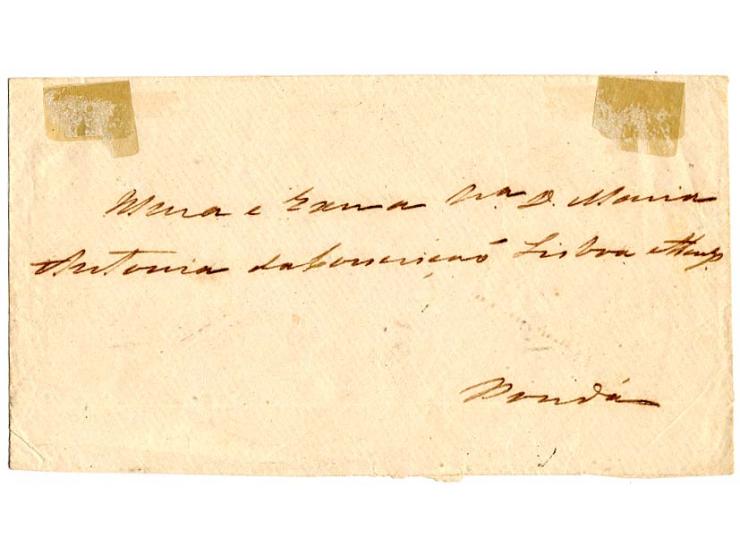 Illma e Exma Sra D. Maria
Antonia da Conceição Lisboa e
Pondá